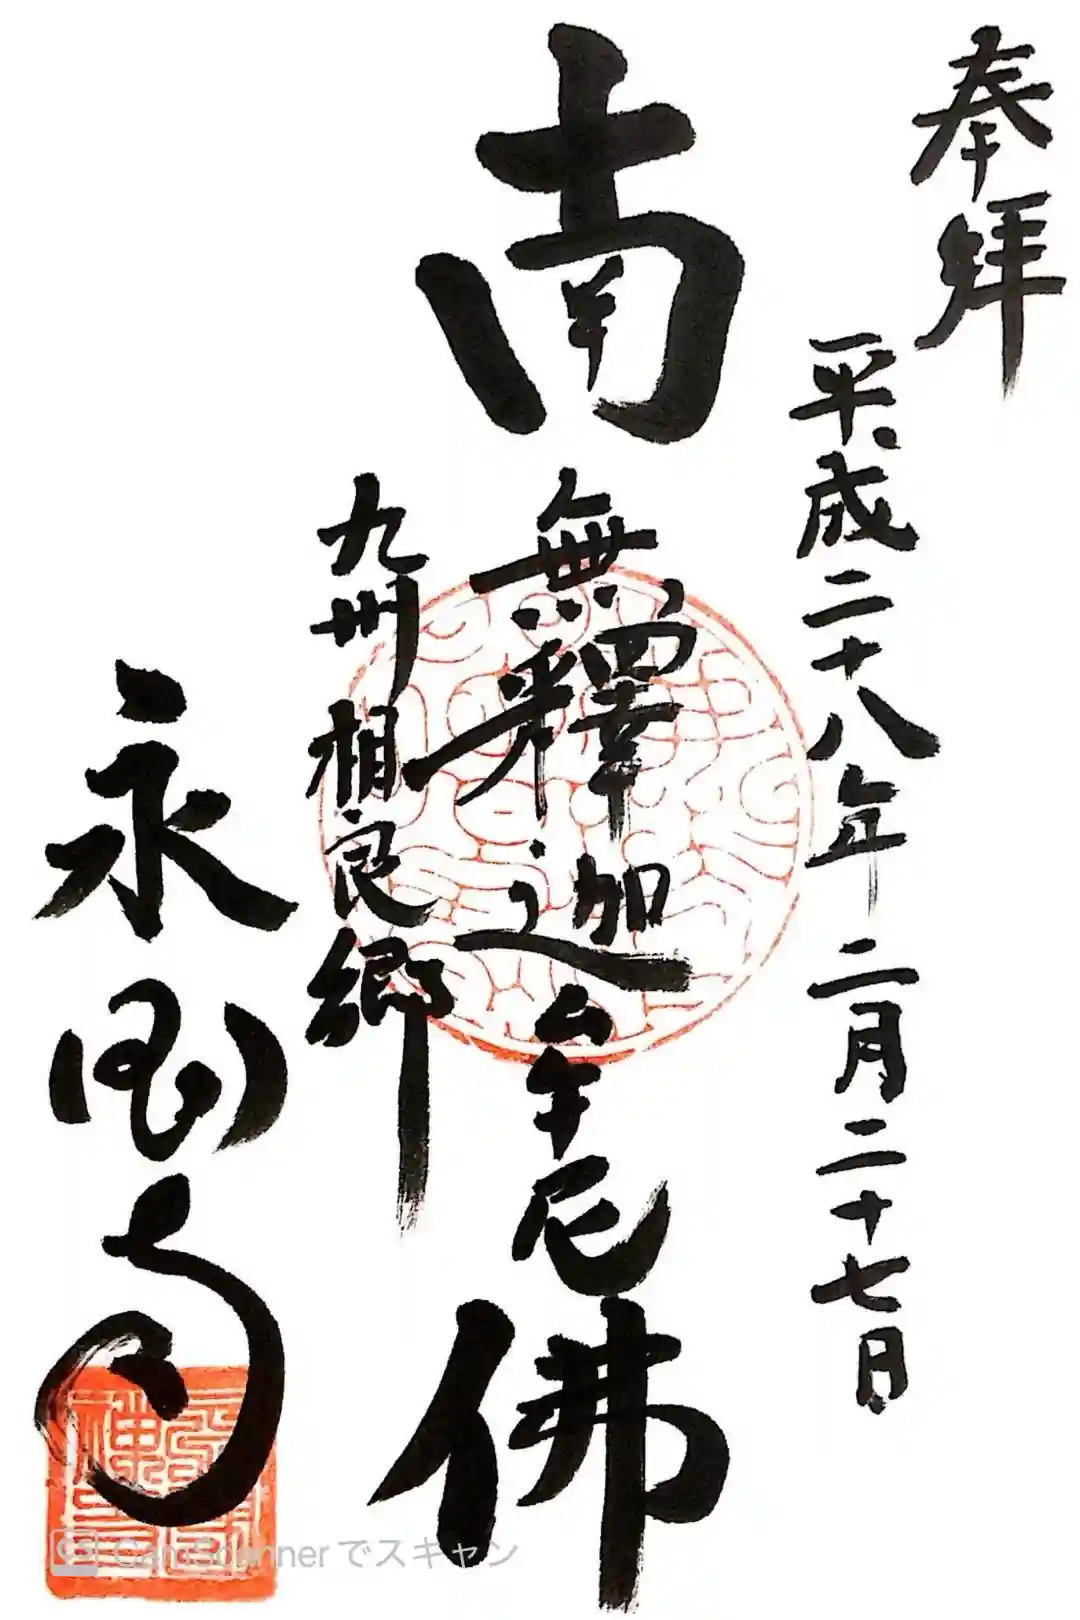 奉拝
平成二十八年二月二十七日
南無釋迦牟尼佛
九州相良郷
永国寺
CamScannerでスキャン